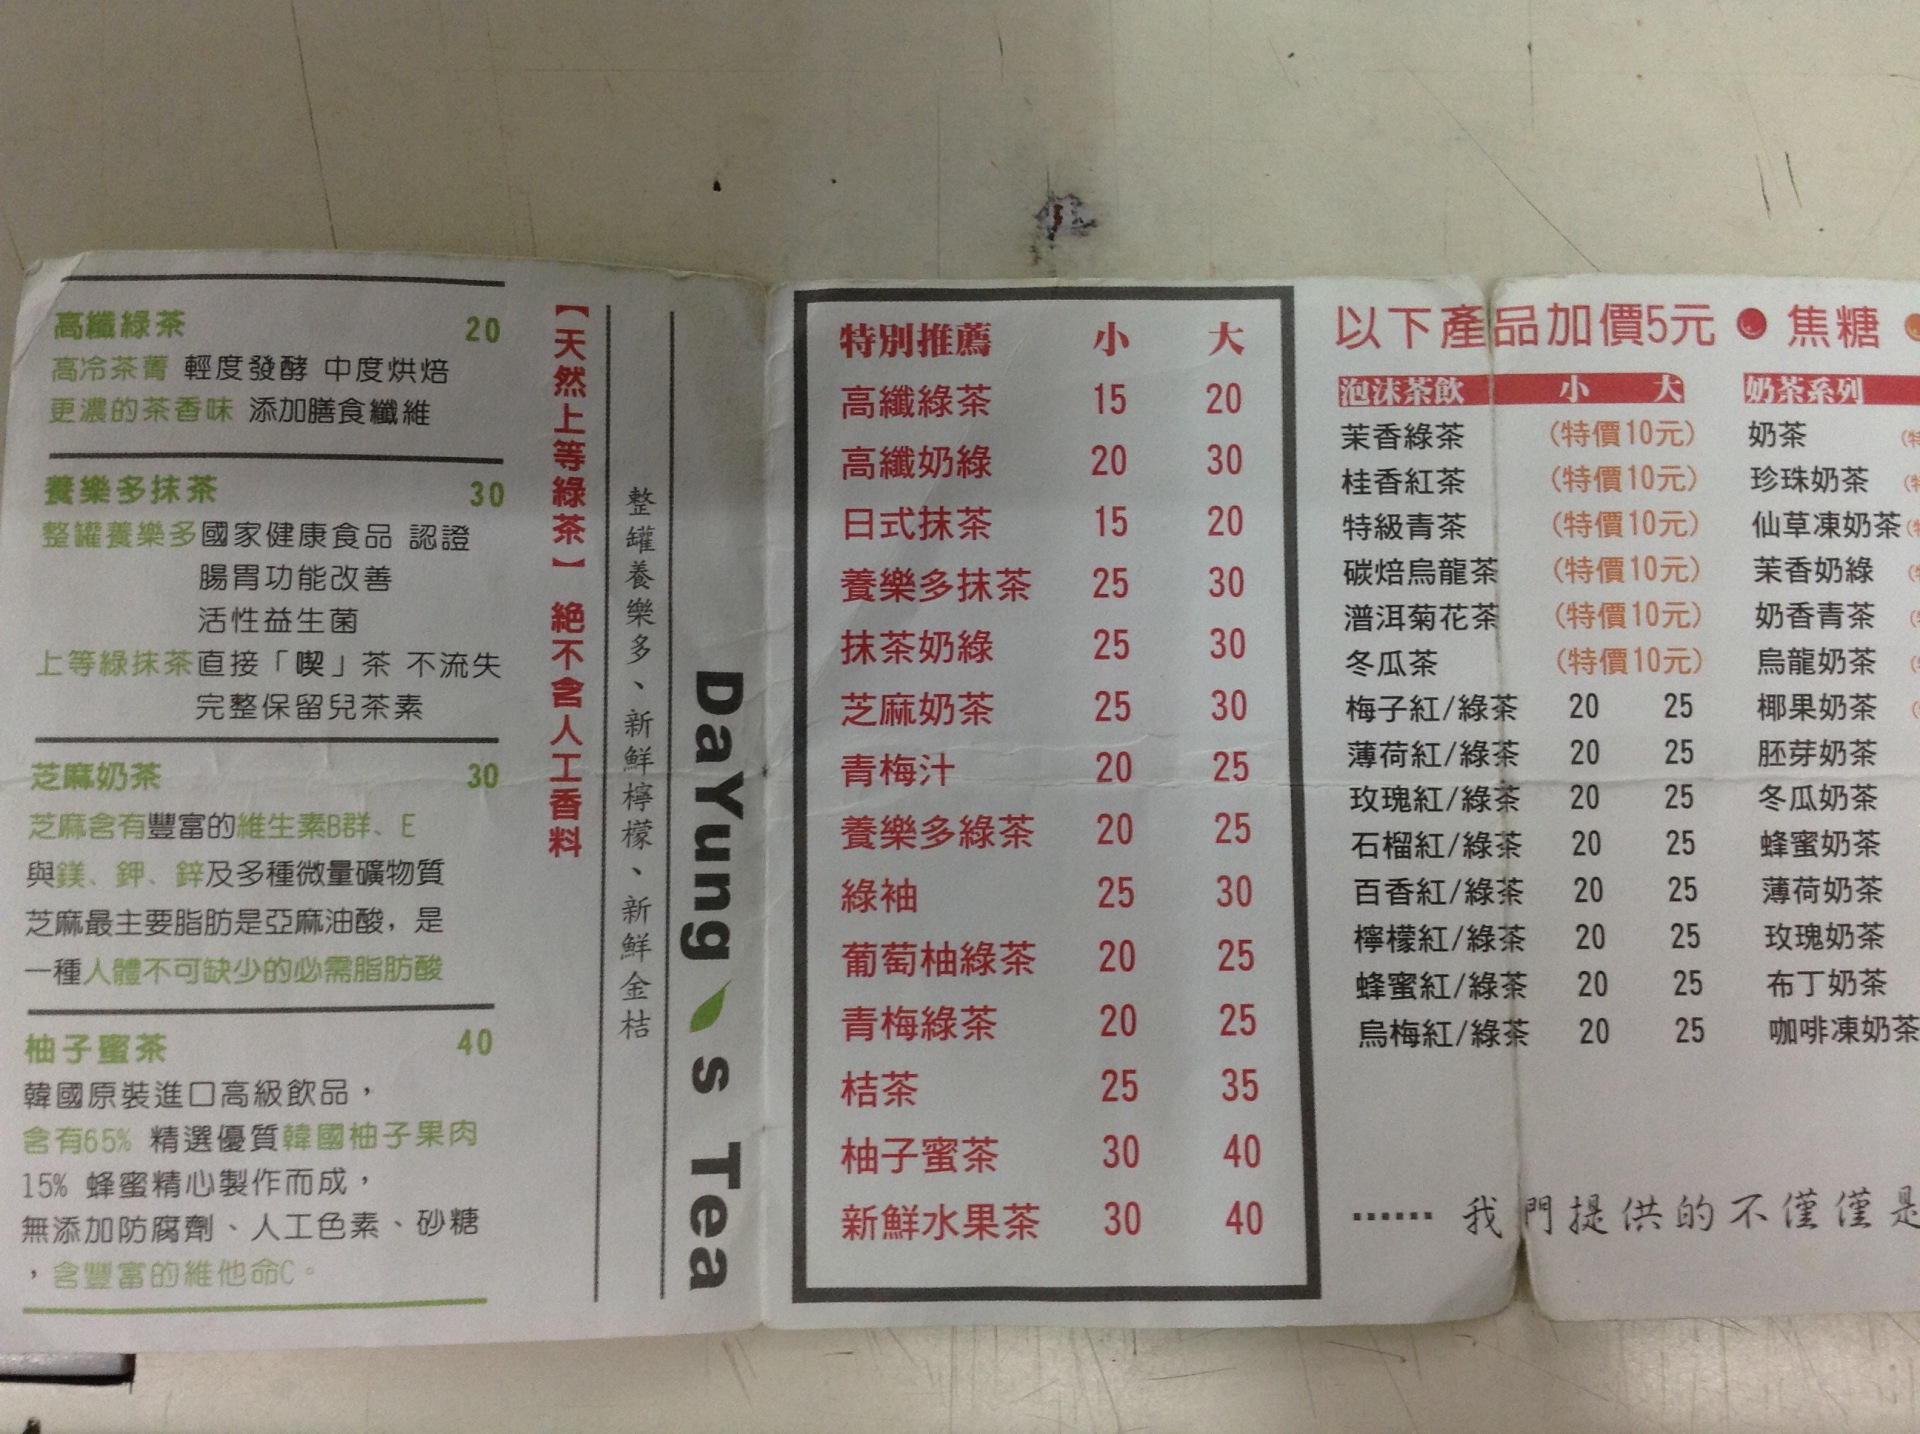 高纖綠茶 20
高冷茶菁 輕度發酵 中度烘焙
更濃的茶香味 添加膳食纖維
養樂多抹茶 30
整罐養樂多國家健康食品 認證
腸胃功能改善
活性益生菌
上等綠抹茶直接「喫」茶 不流失
完整保留兒茶素
芝麻奶茶 30
芝麻含有豐富的維生素B群、E
與鎂、鉀、鋅及多種微量礦物質
芝麻最主要脂肪是亞麻油酸，是
一種人體不可缺少的必需脂肪酸
柚子蜜茶 40
韓國原裝進口高級飲品，
含有65% 精選優質韓國柚子果肉
15% 蜂蜜精心製作而成，
無添加防腐劑、人工色素、砂糖
，含豐富的維他命C。
【天然上等綠茶】 絕不含人工香料
整罐養樂多、新鮮檸檬、新鮮金桔
DaYung's Tea
特別推薦 小 大
高纖綠茶 15 20
高纖奶綠 20 30
日式抹茶 15 20
養樂多抹茶 25 30
抹茶奶綠 25 30
芝麻奶茶 25 30
青梅汁 20 25
養樂多綠茶 20 25
綠袖 25 30
葡萄柚綠茶 20 25
青梅綠茶 20 25
桔茶 25 35
柚子蜜茶 30 40
新鮮水果茶 30 40
以下產品加價5元 ● 焦糖
泡沫茶飲 小 大
茉香綠茶 (特價10元)
桂香紅茶 (特價10元)
特級青茶 (特價10元)
碳焙烏龍茶 (特價10元)
潽洱菊花茶 (特價10元)
冬瓜茶 (特價10元)
梅子紅/綠茶 20 25
薄荷紅/綠茶 20 25
玫瑰紅/綠茶 20 25
石榴紅/綠茶 20 25
百香紅/綠茶 20 25
檸檬紅/綠茶 20 25
蜂蜜紅/綠茶 20 25
烏梅紅/綠茶 20 25
奶茶系列
奶茶
珍珠奶茶
仙草凍奶茶
茉香奶綠
奶香青茶
烏龍奶茶
椰果奶茶
胚芽奶茶
冬瓜奶茶
蜂蜜奶茶
薄荷奶茶
玫瑰奶茶
布丁奶茶
咖啡凍奶茶
...... 我們提供的不僅僅是